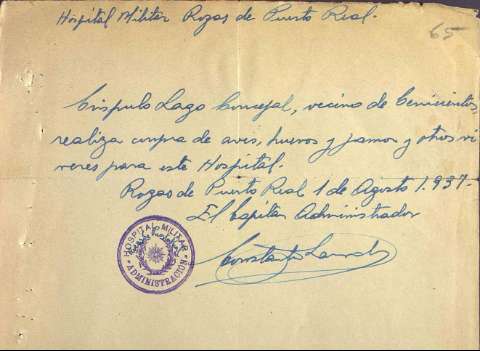 Hospital Militar Rozas de Puerto Real.
65
Crispulo Lago Concejal, vecino de Cenicientos,
realiza compra de aves, huevos y jamos y otros vi
veres para este Hospital.
Rozas de Puerto Real 1 de Agosto 1.937.-
El Capitan Administrador
HOSPITAL MILITAR
ADMINISTRACION